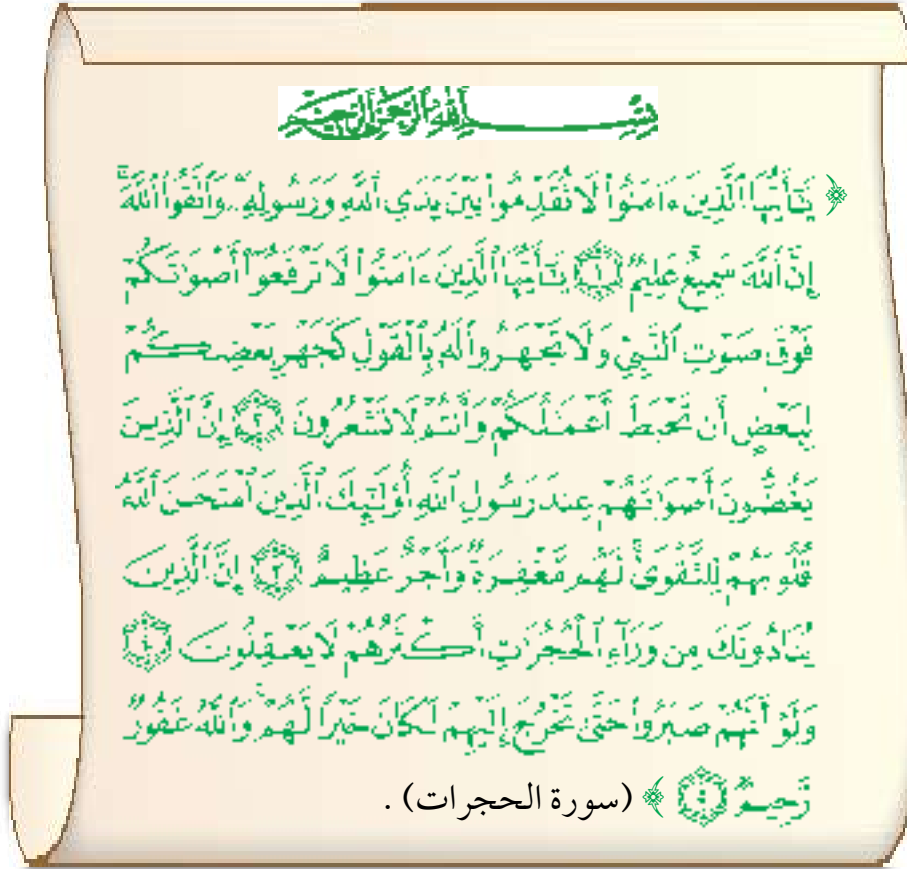 بِسْمِ اللَّهِ الرَّحْمَٰنِ الرَّحِيمِ
﴿ يَٰٓأَيُّهَا ٱلَّذِينَ ءَامَنُوا۟ لَا تُقَدِّمُوا۟ بَيْنَ يَدَىِ ٱللَّهِ وَرَسُولِهِۦ وَٱتَّقُوا۟ ٱللَّهَ
إِنَّ ٱللَّهَ سَمِيعٌ عَلِيمٌ ١ يَٰٓأَيُّهَا ٱلَّذِينَ ءَامَنُوا۟ لَا تَرْفَعُوٓا۟ أَصْوَٰتَكُمْ
فَوْقَ صَوْتِ ٱلنَّبِىِّ وَلَا تَجْهَرُوا۟ لَهُۥ بِٱلْقَوْلِ كَجَهْرِ بَعْضِكُمْ
لِبَعْضٍ أَن تَحْبَطَ أَعْمَٰلُكُمْ وَأَنتُمْ لَا تَشْعُرُونَ ٢ إِنَّ ٱلَّذِينَ
يَغُضُّونَ أَصْوَٰتَهُمْ عِندَ رَسُولِ ٱللَّهِ أُو۟لَٰٓئِكَ ٱلَّذِينَ ٱمْتَحَنَ ٱللَّهُ
قُلُوبَهُمْ لِلتَّقْوَىٰ لَهُم مَّغْفِرَةٌ وَأَجْرٌ عَظِيمٌ ٣ إِنَّ ٱلَّذِينَ
يُنَادُونَكَ مِن وَرَآءِ ٱلْحُجُرَٰتِ أَكْثَرُهُمْ لَا يَعْقِلُونَ ٤
وَلَوْ أَنَّهُمْ صَبَرُوا۟ حَتَّىٰ تَخْرُجَ إِلَيْهِمْ لَكَانَ خَيْرًا لَّهُمْ وَٱللَّهُ غَفُورٌ
رَّحِيمٌ ٥ ﴾ (سورة الحجرات) .